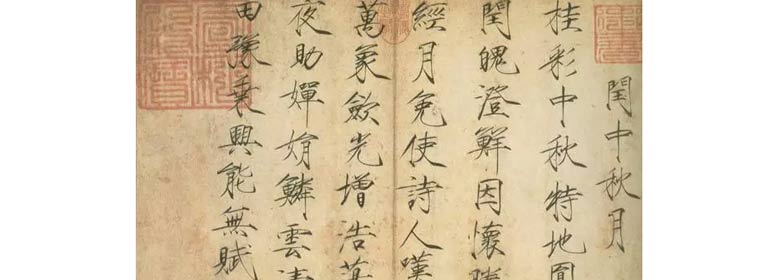 閏中秋月
桂彩中秋特地圓
閏魄澄鮮因懷勝
經月免使詩人嘆
萬象斂光增浩蕩
夜助嬋娟鱗雲清
田豫乘興能無賦